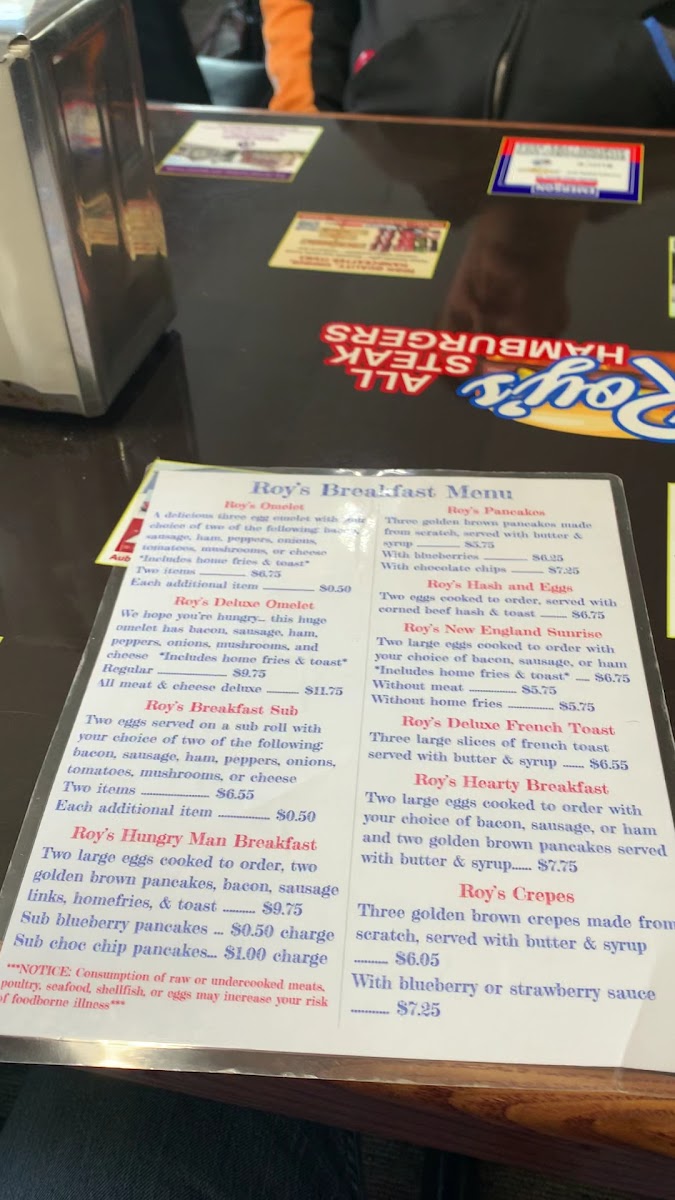 ALL
STEAK
HAMBURGERS
Roy's
Aub
Roy's Breakfast Menu
Roy's Omelet
A delicious three egg omelet with your
choice of two of the following: bacon,
sausage, ham, peppers, onions,
tomatoes, mushrooms, or cheese
*Includes home fries & toast*
Two items ........... $6.75
Each additional item ........... $0.50
Roy's Deluxe Omelet
We hope you're hungry... this huge
omelet has bacon, sausage, ham,
peppers, onions, mushrooms, and
cheese *Includes home fries & toast*
Regular ............... $9.75
All meat & cheese deluxe ....... $11.75
Roy's Breakfast Sub
Two eggs served on a sub roll with
your choice of two of the following:
bacon, sausage, ham, peppers, onions,
tomatoes, mushrooms, or cheese
Two items .................. $6.55
Each additional item ............. $0.50
Roy's Hungry Man Breakfast
Two large eggs cooked to order, two
golden brown pancakes, bacon, sausage
links, homefries, & toast .......... $9.75
Sub blueberry pancakes ... $0.50 charge
Sub choc chip pancakes... $1.00 charge
***NOTICE: Consumption of raw or undercooked meats,
poultry, seafood, shellfish, or eggs may increase your risk
of foodborne illness***
Roy's Pancakes
Three golden brown pancakes made
from scratch, served with butter &
syrup ........... $5.75
With blueberries ........... $6.25
With chocolate chips ........ $7.25
Roy's Hash and Eggs
Two eggs cooked to order, served with
corned beef hash & toast ....... $6.75
Roy's New England Sunrise
Two large eggs cooked to order with
your choice of bacon, sausage, or ham
*Includes home fries & toast* .... $6.75
Without meat ............. $5.75
Without home fries ............ $5.75
Roy's Deluxe French Toast
Three large slices of french toast
served with butter & syrup ...... $6.55
Roy's Hearty Breakfast
Two large eggs cooked to order with
your choice of bacon, sausage, or ham
and two golden brown pancakes served
with butter & syrup...... $7.75
Roy's Crepes
Three golden brown crepes made from
scratch, served with butter & syrup
.......... $6.05
With blueberry or strawberry sauce
........... $7.25